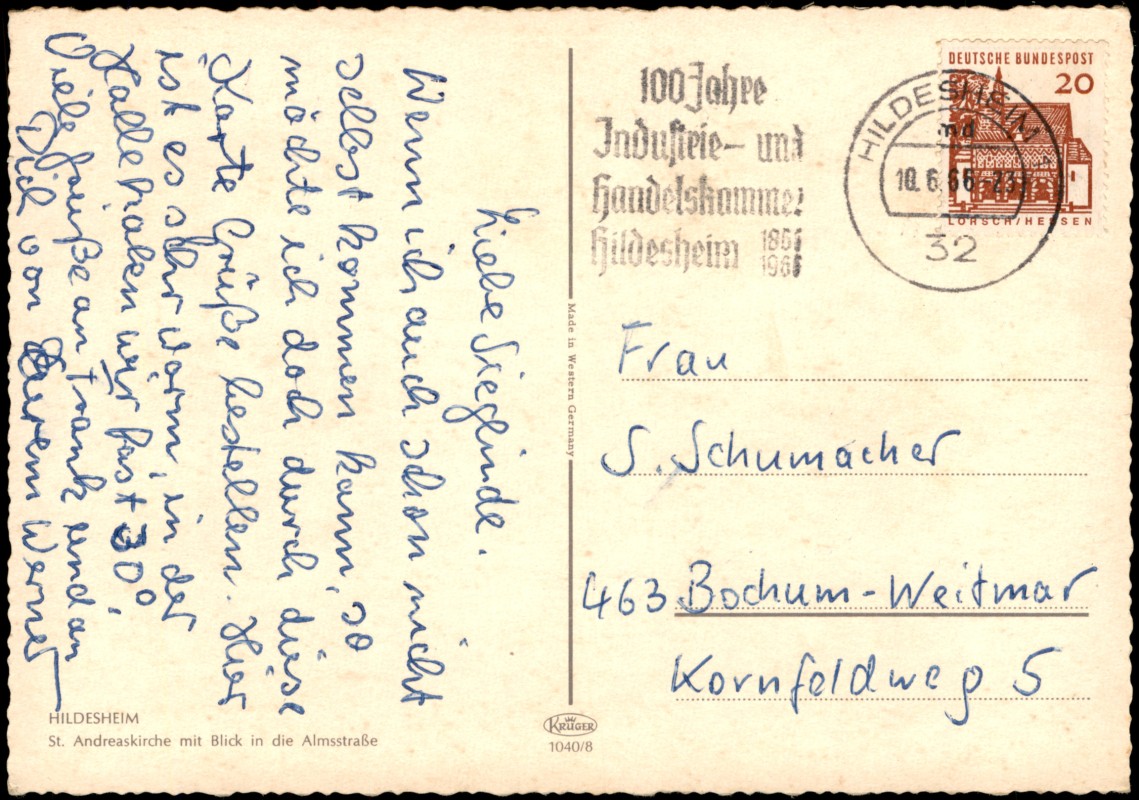 Liebe Sieglinde.
Wenn ich auch schon nicht
selbst kommen kann, so
möchte ich doch durch diese
Karte Grüße bestellen. Hier
ist es sehr warm, in der
Halle haben wir fast 30°.
Viele Grüße an Frank und an
Dich von Eurem Werner
HILDESHEIM
St. Andreaskirche mit Blick in die Almsstraße
Made in Western Germany
KRÜGER
1040/8
100 Jahre
Industrie- und
Handelskammer
Hildesheim 1866
1966
HILDESHEIM 1
md
10.6.66-23
32
DEUTSCHE BUNDESPOST
20
LORSCH/HESSEN
Frau
S. Schumacher
463 Bochum-Weitmar
Kornfeldweg 5